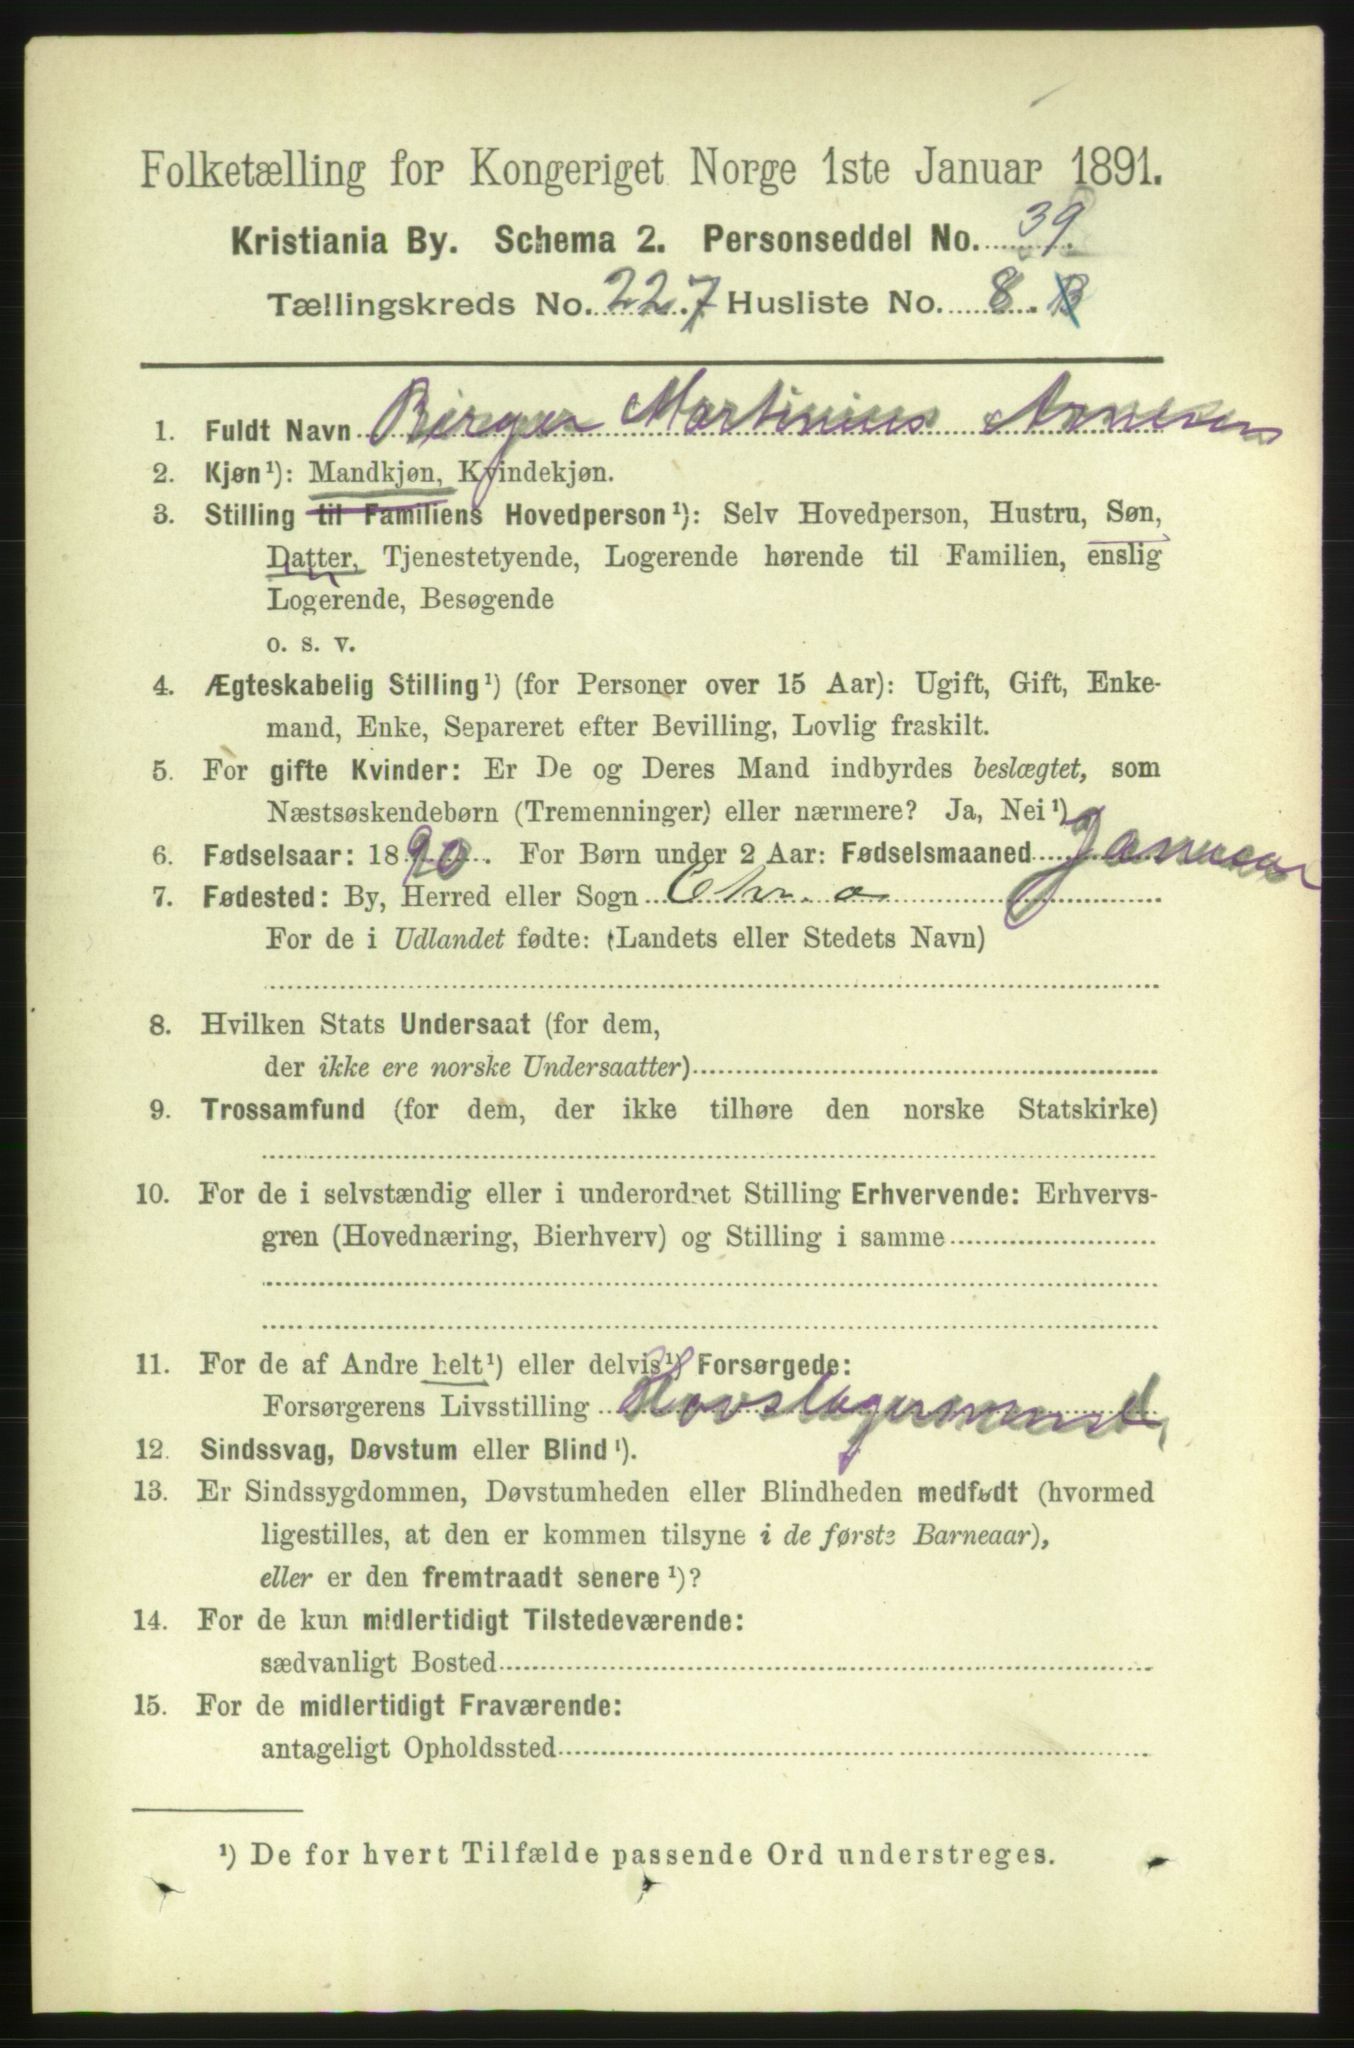 Folketælling for Kongeriget Norge 1ste Januar 1891.
Kristiania By. Schema 2. Personseddel No. 39.
Tællingskreds No. 227 Husliste No. 8. B
1. Fuldt Navn Birger Martinius
2. Kjøn¹): Mandkjøn, Kvindekjøn.
3. Stilling til Familiens Hovedperson¹): Selv Hovedperson, Hustru, Søn,
Datter, Tjenestetyende, Logerende hørende til Familien, enslig
Logerende, Besøgende
o. s. v.
4. Ægteskabelig Stilling¹) (for Personer over 15 Aar): Ugift, Gift, Enke-
mand, Enke, Separeret efter Bevilling, Lovlig fraskilt.
5. For gifte Kvinder: Er De og Deres Mand indbyrdes beslægtet, som
Næstsøskendebørn (Tremenninger) eller nærmere? Ja, Nei¹)
6. Fødselsaar: 1890. For Børn under 2 Aar: Fødselsmaaned Januar
7. Fødested: By, Herred eller Sogn Chr.a
For de i Udlandet fødte: (Landets eller Stedets Navn)
8. Hvilken Stats Undersaat (for dem,
der ikke ere norske Undersaatter)
9. Trossamfund (for dem, der ikke tilhøre den norske Statskirke)
10. For de i selvstændig eller i underordnet Stilling Erhvervende: Erhvervs-
gren (Hovednæring, Bierhverv) og Stilling i samme
11. For de af Andre helt¹) eller delvis¹) Forsørgede:
Forsørgerens Livsstilling
12. Sindssvag, Døvstum eller Blind¹).
13. Er Sindssygdommen, Døvstumheden eller Blindheden medfødt (hvormed
ligestilles, at den er kommen tilsyne i de første Barneaar),
eller er den fremtraadt senere¹)?
14. For de kun midlertidigt Tilstedeværende:
sædvanligt Bosted
15. For de midlertidigt Fraværende:
antageligt Opholdssted
¹) De for hvert Tilfælde passende Ord understreges.